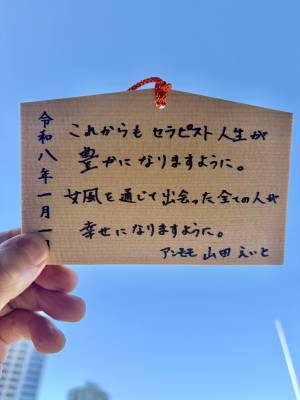 これからもセラピスト人生が
豊かになりますように。
女風を通じて出会った全ての人が
幸せになりますように。
アンモモ 山田 えいと
令和八年一月一